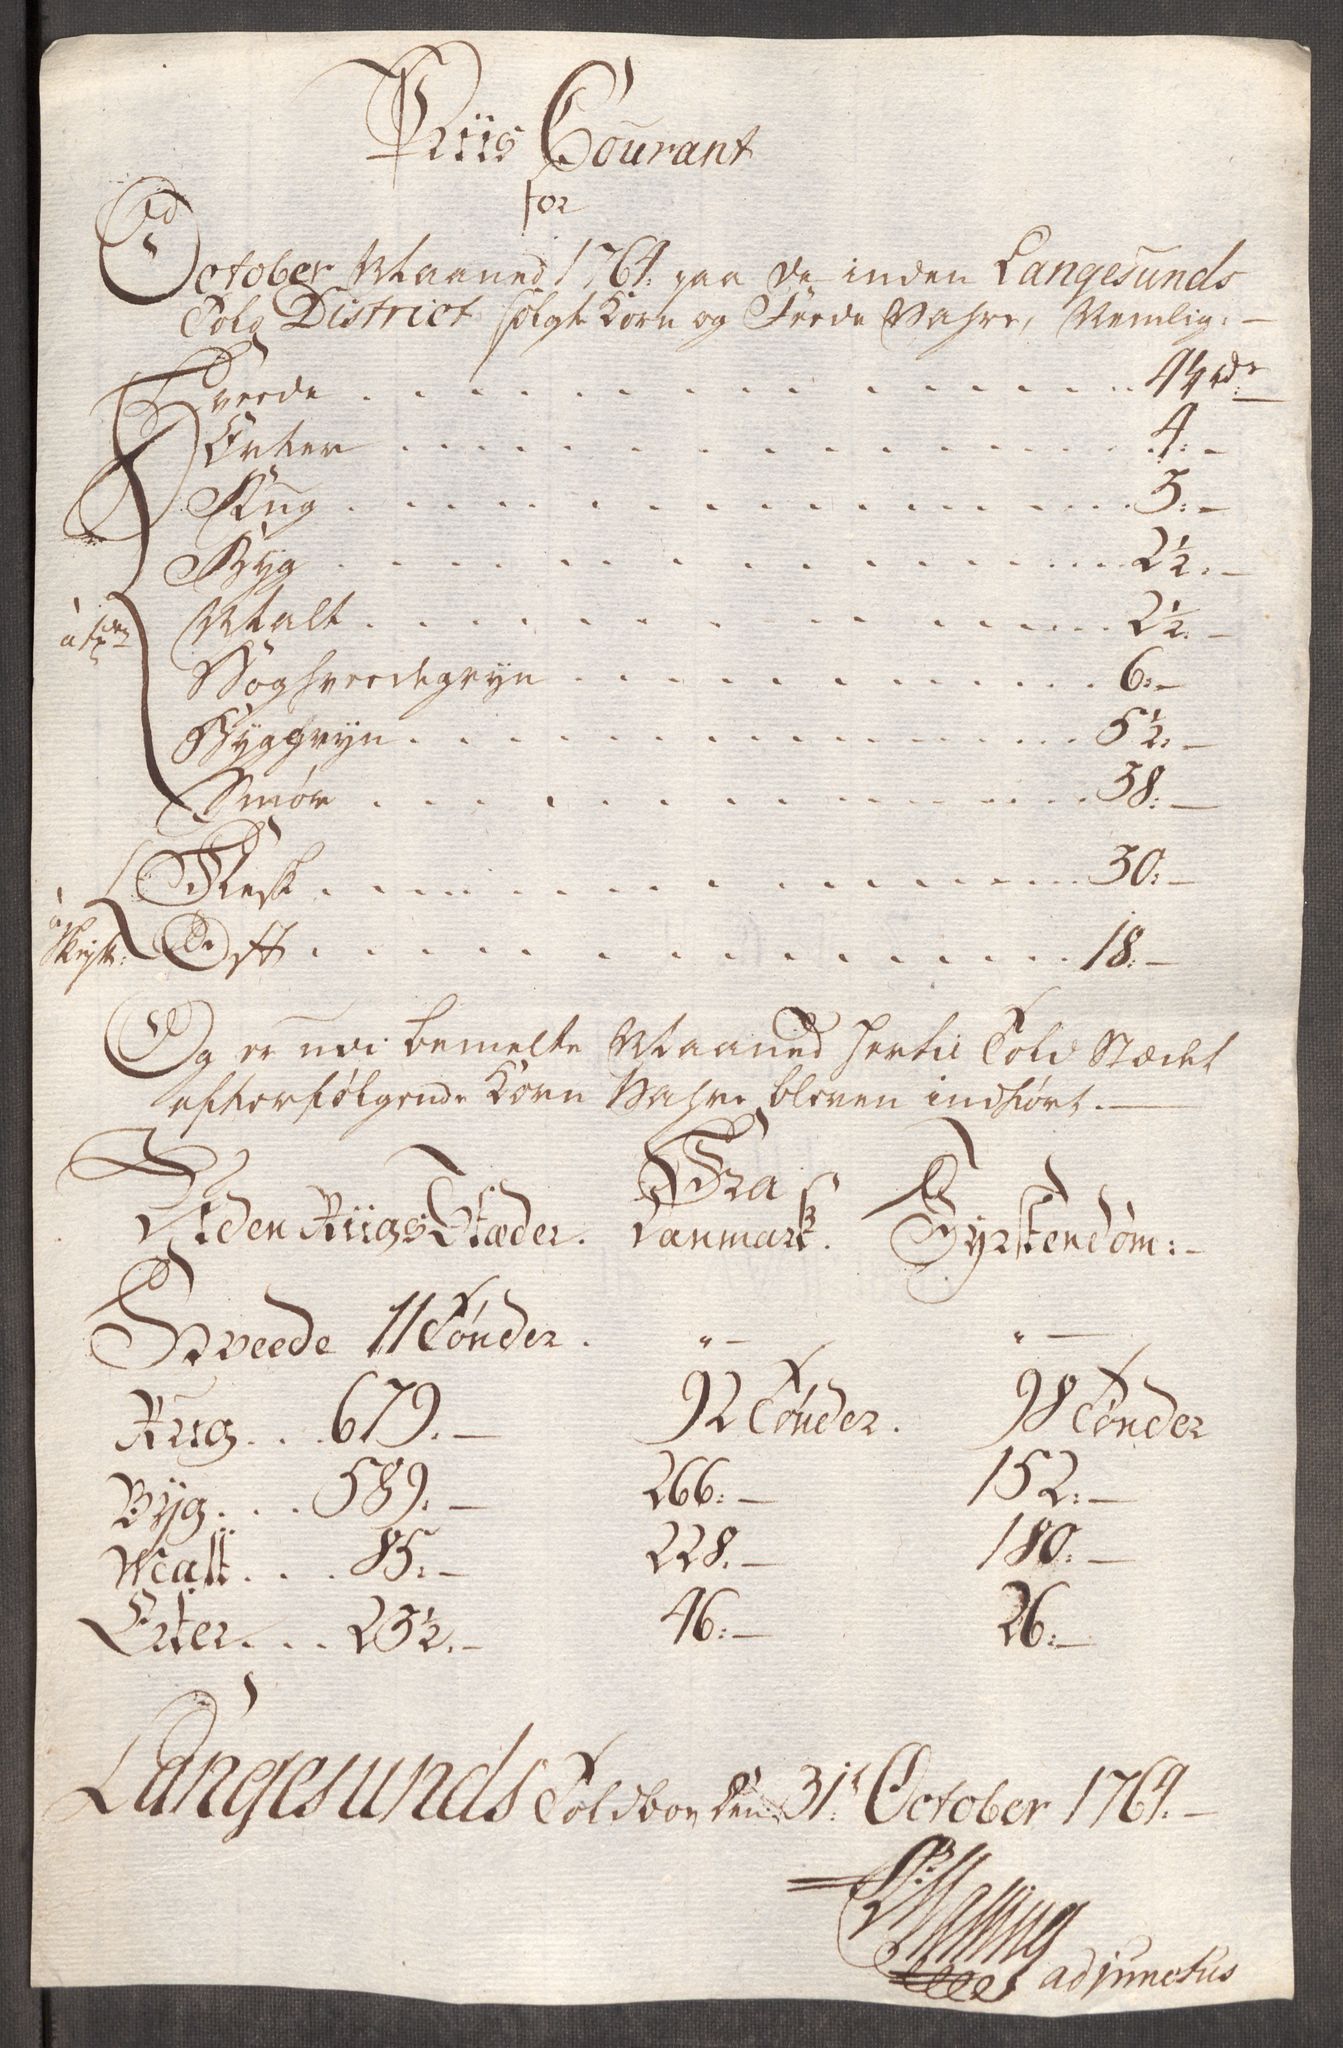 Priis Courant
for
October Maaned 1764. paa de inden Langesunds
Told District solgte Korn og Feede Vahre, Nemlig:
Hveede . . . 4½ rdr
Erter . . . 4:
Rug . . . 3:
Byg . . . 2½:
à Tøn
Malt . . . 2½:
Boghveedegryn . . . 6:
Byggryn . . . 5½:
Smør . . . 38:
Flesk . . . 30:
à
Ost . . . 18:
Og er udi bemelte Maaned hertil Told Stædet
efterfølgende Korn Vahre bleven indført.
Fra
Uden Riigs Stæder. Danmark. Fyrstendøm:
Hveede 11 Tønder. " "
Rug . . . 679. 92 Tønder. 98 Tønder
Byg . . . 589. 266: 152:
Malt . . . 85: 228. 180:
Erter . . . 23½. 46: 26:
Langesunds Toldboe den 31t October 1764.
adjunctus